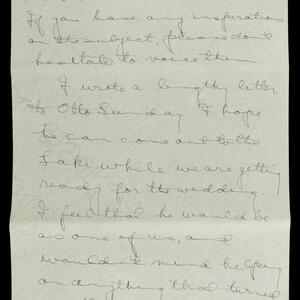 If you have any inspirations
on the subject, please don't
hesitate to voice them.
I wrote a lengthy letter
to Otto Sunday. I hope
he can come out to the
Lake while we are getting
ready for the wedding.
I feel that he would be
as one of us, and
wouldn't mind helping
on anything that turned